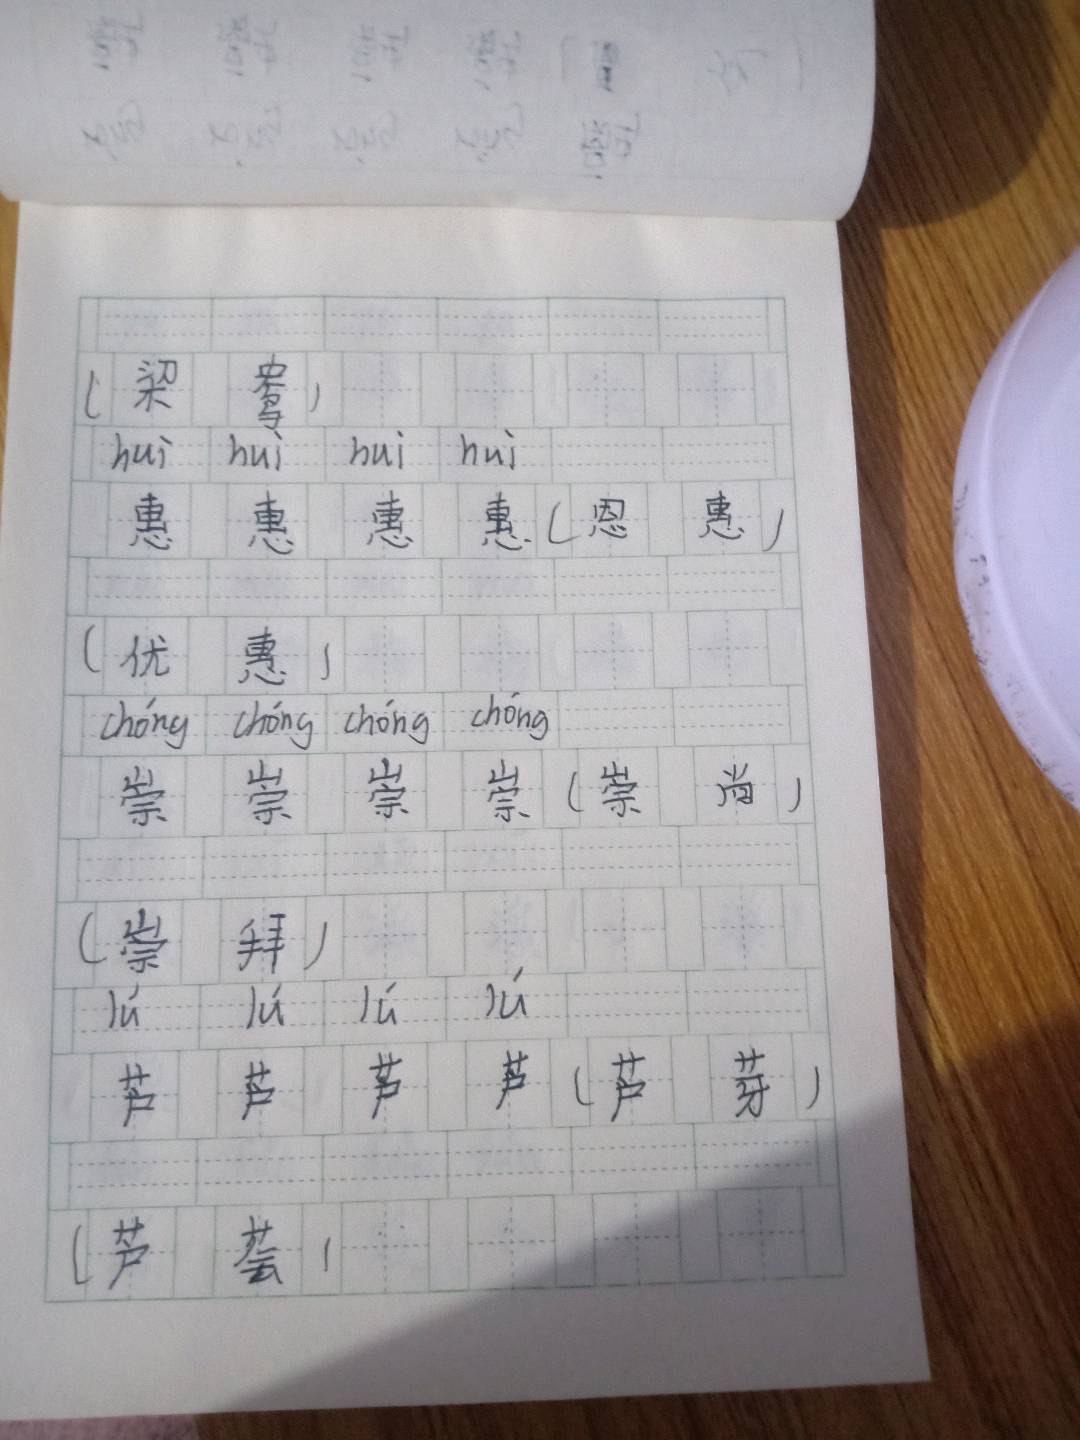 （梁鸯）
huì huì huì huì
惠 惠 惠 惠（恩惠）
（优惠）
chóng chóng chóng chóng
崇 崇 崇 崇（崇尚）
（崇拜）
lú lú lú lú
芦 芦 芦 芦（芦芽）
（芦荟）